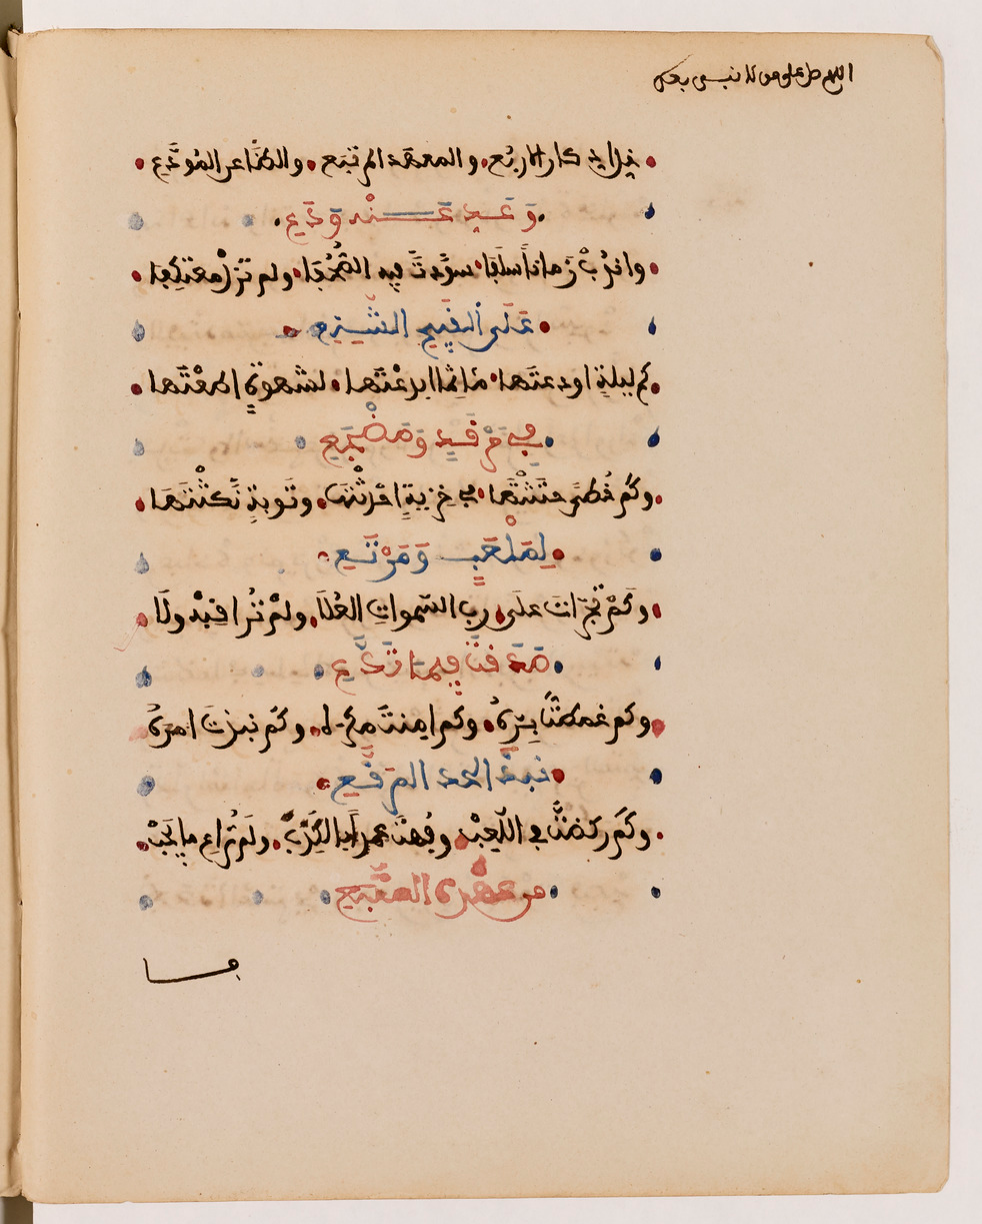 اللهم صل على من لا نبي بعده
خل ادكار الاربع والمعهد المرتبع والظاعن المودع
وَعَدِّ عَنْه وَدَعِ
واندُبْ زَماناً سلَفا سوَّدتَ فيه الصُّحُفا ولم تزلْ معتكفا
عَلَى القبيح الشنع
كم ليلةٍ اودعتَها مَاثما ابدعْتَها لشهوةٍ اطعْتَها
في مَرْقَدٍ وَمَضْجَعِ
وكَم خُطًى حثَثْتَها في خِزيةٍ احْدثْتَها وتَوبةٍ نَكَثْتَهَا
لِمَلْعَبٍ وَمَرْتَعِ
وكَمْ تَجَرَّاتَ علَى رب السَّمواتِ العُلَا ولمْ تُراقبْه ولَا
صَدَقْتَ فِيمَا تَدَّعِي
وكم غمطتَ بِرّهُ وكم امِنتَ مكره وكَم نبذتَ امرَهُ
نبذَ الحذا المرقَّع
وكَم ركضتَ في اللَّعِبْ وفُهتَ عمداً بالكَذِبْ ولَم تُراعِ ما يَجِبْ
من عهْدِه المتَّبَع